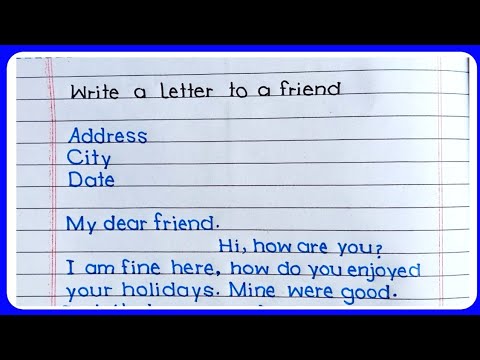 Write a Letter to a friend
Address
City
Date
My dear friend.
Hi, how are you?
I am fine here, how do you enjoyed
your holidays. Mine were good.